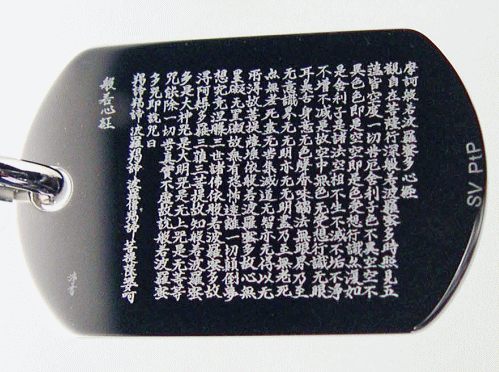 摩訶般若波羅蜜多心經
觀自在菩薩行深般若波羅蜜多時照見五
蘊皆空度一切苦厄舍利子色不異空空不
異色色即是空空即是色受想行識亦復如
是舍利子是諸法空相不生不滅不垢不淨
不增不減是故空中無色无受想行識无眼
耳鼻舌身意无色聲香味觸法無眼界乃至
无意識界无无明亦无无明盡乃至無老死
亦無老死盡无苦集滅道无智亦无得以无
所得故菩提薩埵依般若波羅蜜多故心無
罣礙无罣礙故無有恐怖遠離一切顛倒夢
想究竟涅槃三世諸佛依般若波羅蜜多故
得阿耨多羅三藐三菩提故知般若波羅蜜
多是大神咒是大明咒是无上咒是无等等
咒能除一切苦真實不虛故說般若波羅蜜
多咒即說咒曰
羯諦羯諦 波羅羯諦 波羅僧羯諦 菩提薩婆訶
般若心経
SV PtP